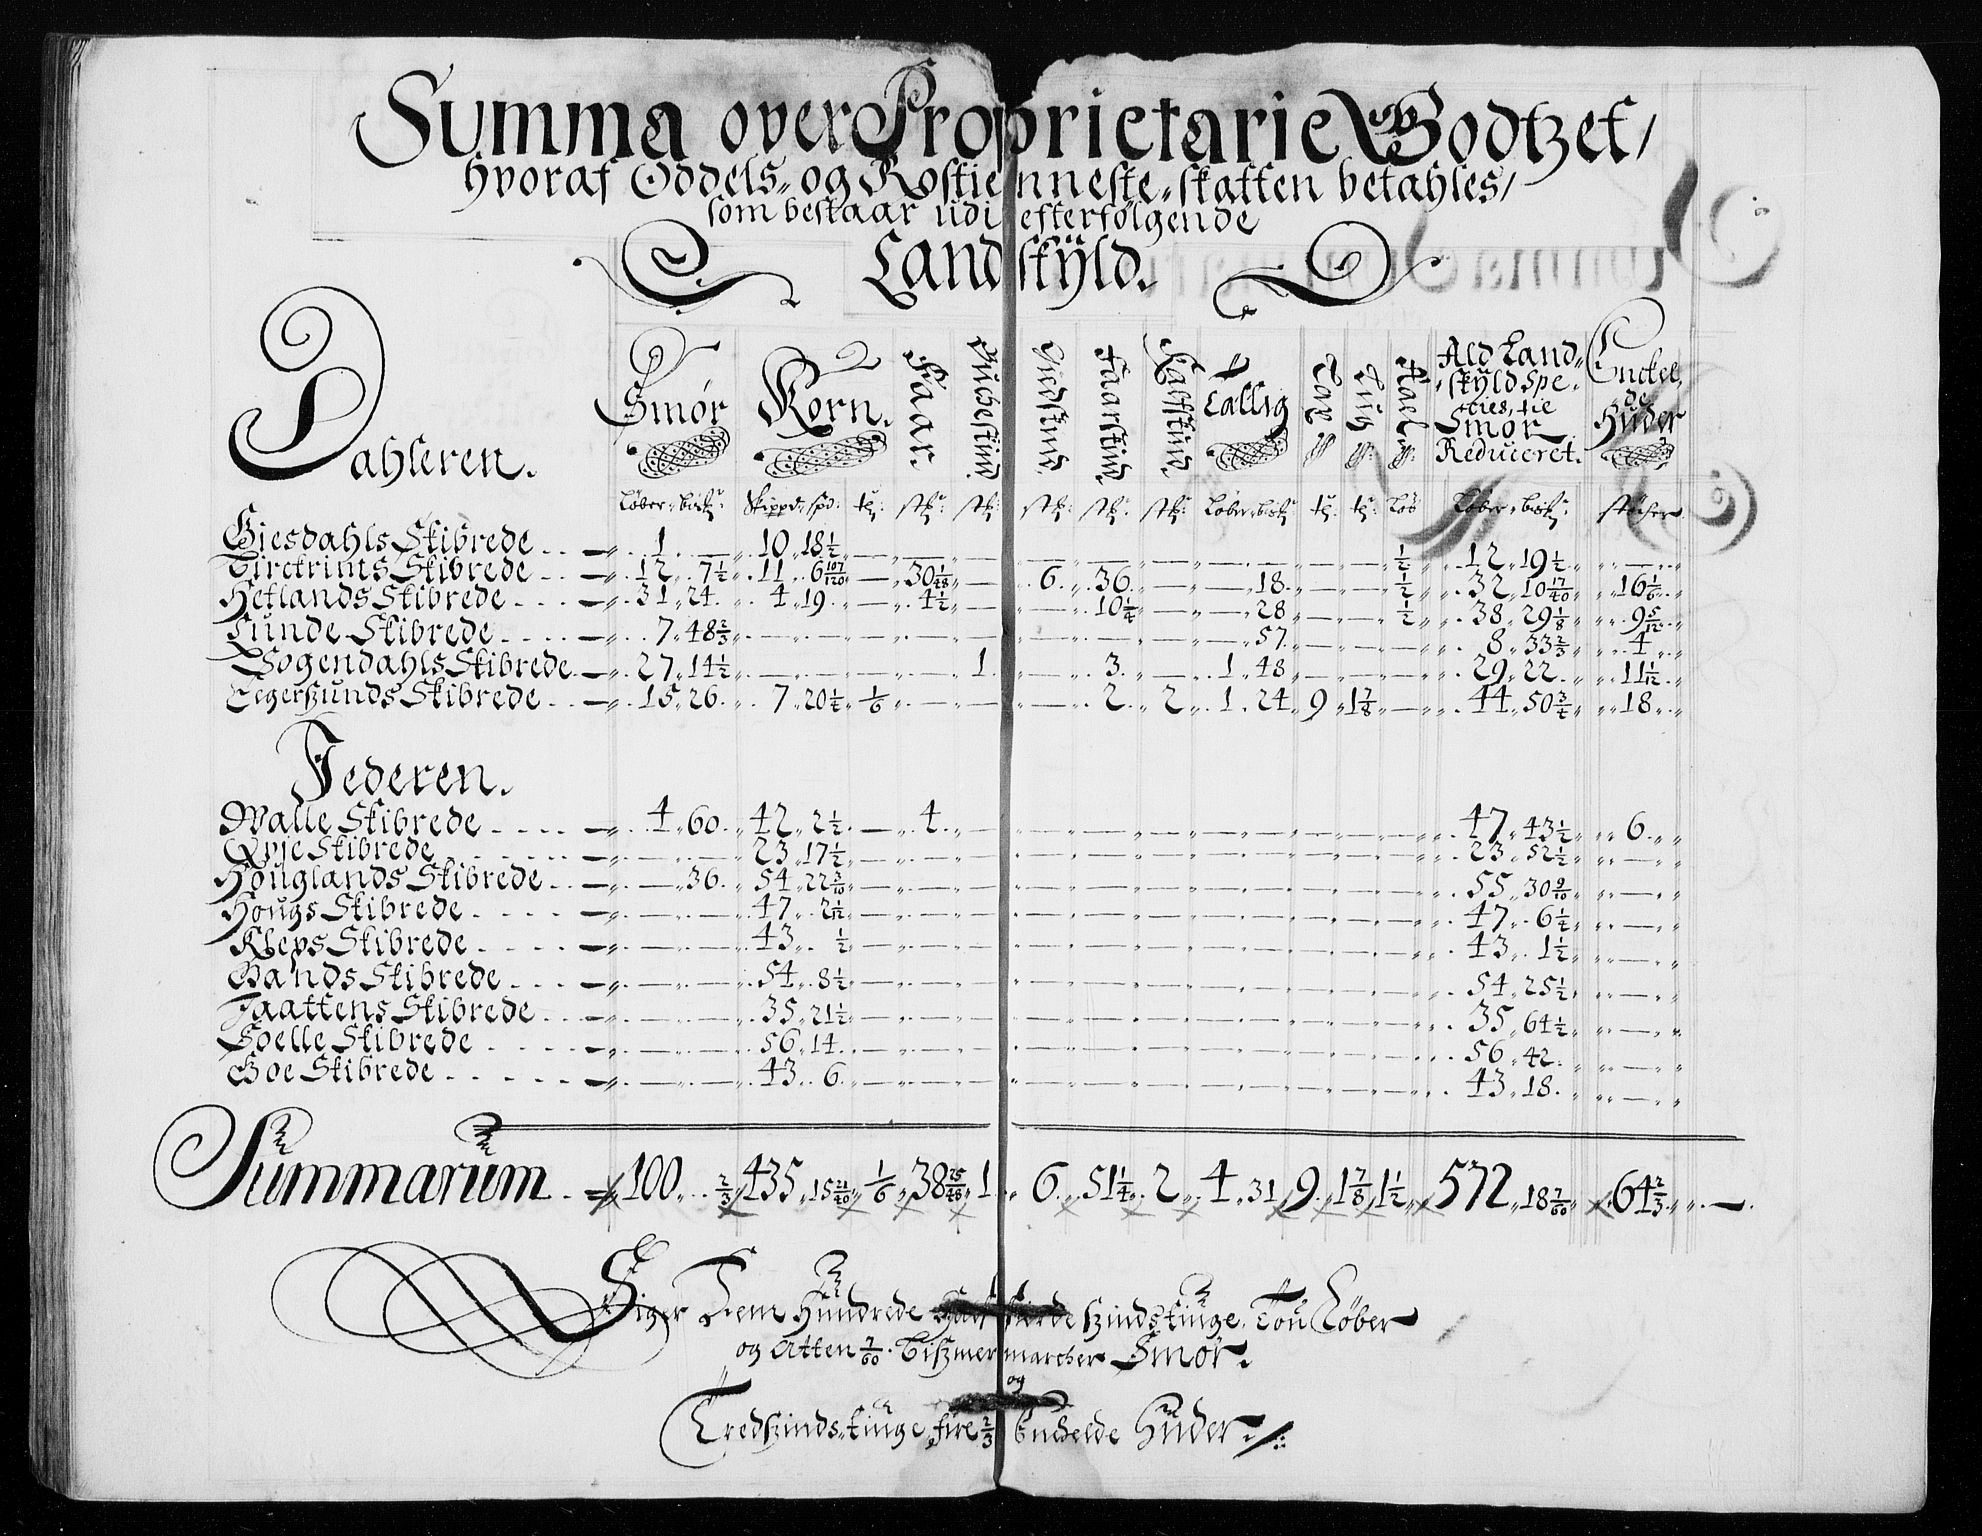 Summa over Proprietarie Godtzet,
hvoraf Oddels- og Rostienneste-skatten betahles,
som bestaar udi efterfølgende
Landskÿld.
Dahleren. Smør Korn. Faar. Buckeskind Giedskind Faarskind Kalfskind Tallig Ald Land-skÿld Spe-cies, tie Smør Reduceret. Enckel-de Hüder
Løber. Skippd: spd: tß: stk: stk: stk: stk: stk: Løber. Løb Løber. støcher
Giesdahls Skibrede 1 — 10 18 1/2 — — — — — — — — — 1/2 12 19 1/2 —
Birckrims Skibrede 12 7 1/2 11 6 107/120 — 30 1/48 — 6 36 — 18 — — 1/2 32 10 17/40 16 1/6
Hetlands Skibrede 31 24 4 19 — 4 1/2 — — 10 1/4 — 28 — — 1/2 38 29 1/8 9 5/12
Lunde Skibrede 7 48 2/3 — — — — — — — — 57 — — — 8 33 2/3 4
Sogendahls Skibrede 27 14 1/2 — — — — 1 — 3 — 1 48 — — — 29 22 11 1/12
Eegersunds Skibrede 15 26 7 20 1/4 1/6 — — — 2 2 1 24 9 1 7/8 — 44 50 3/4 18
Jederen.
Walle Skibrede 4 60 42 2 1/2 — 4 — — — — — — — — 47 43 1/2 6
Qvie Skibrede — — 23 17 1/2 — — — — — — — — — — 23 52 1/2 —
Houglands Skibrede — 36 54 22 3/10 — — — — — — — — — — 55 30 9/10 —
Hougs Skibrede — — 47 2 1/12 — — — — — — — — — — 47 6 1/4 —
Kleps Skibrede — — 43 1/2 — — — — — — — — — — 43 1 1/2 —
Gands Skibrede — — 54 8 1/2 — — — — — — — — — — 54 25 1/2 —
Jaattens Skibrede — — 35 21 1/2 — — — — — — — — — — 35 64 1/2 —
Soelle Skibrede — — 56 14 — — — — — — — — — — 56 42 —
Goe Skibrede — — 43 6 — — — — — — — — — — 43 18 —
Summarum 100 2/3 435 15 21/40 1/6 38 25/48 1 6 51 1/4 2 4 31 9 1 7/8 1 1/2 572 18 7/60 64 2/3 —
Siger Fem Hundrede Half fierde Sindstiuge Tou Løber
og Atten 7/60 Bismermarcher Smør.
og
Tredsindstiuge fire 2/3 Enchelde Hüder